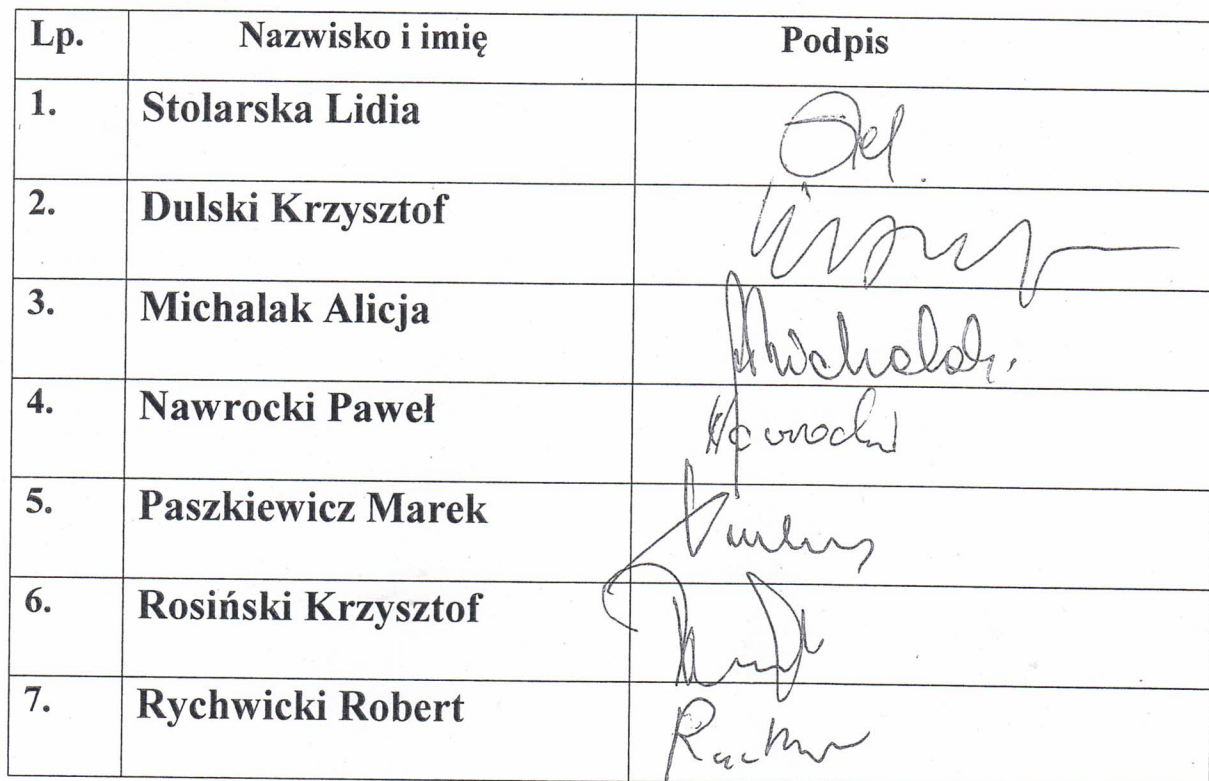 Lp. Nazwisko i imię Podpis
1. Stolarska Lidia
2. Dulski Krzysztof
3. Michalak Alicja Michalak
4. Nawrocki Paweł Nawrocki
5. Paszkiewicz Marek
6. Rosiński Krzysztof
7. Rychwicki Robert